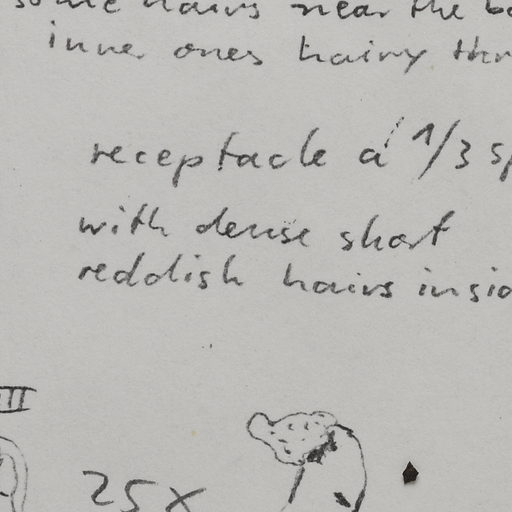 some hairs near the b
inner ones hairy thr
receptacle a 1/3 sp
with dense short
reddish hairs insid
III
25 x